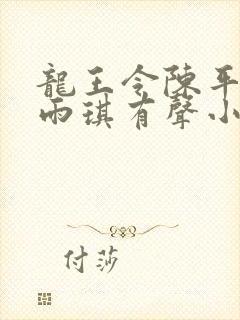 龍王令陳平
雨琪有聲小
付莎